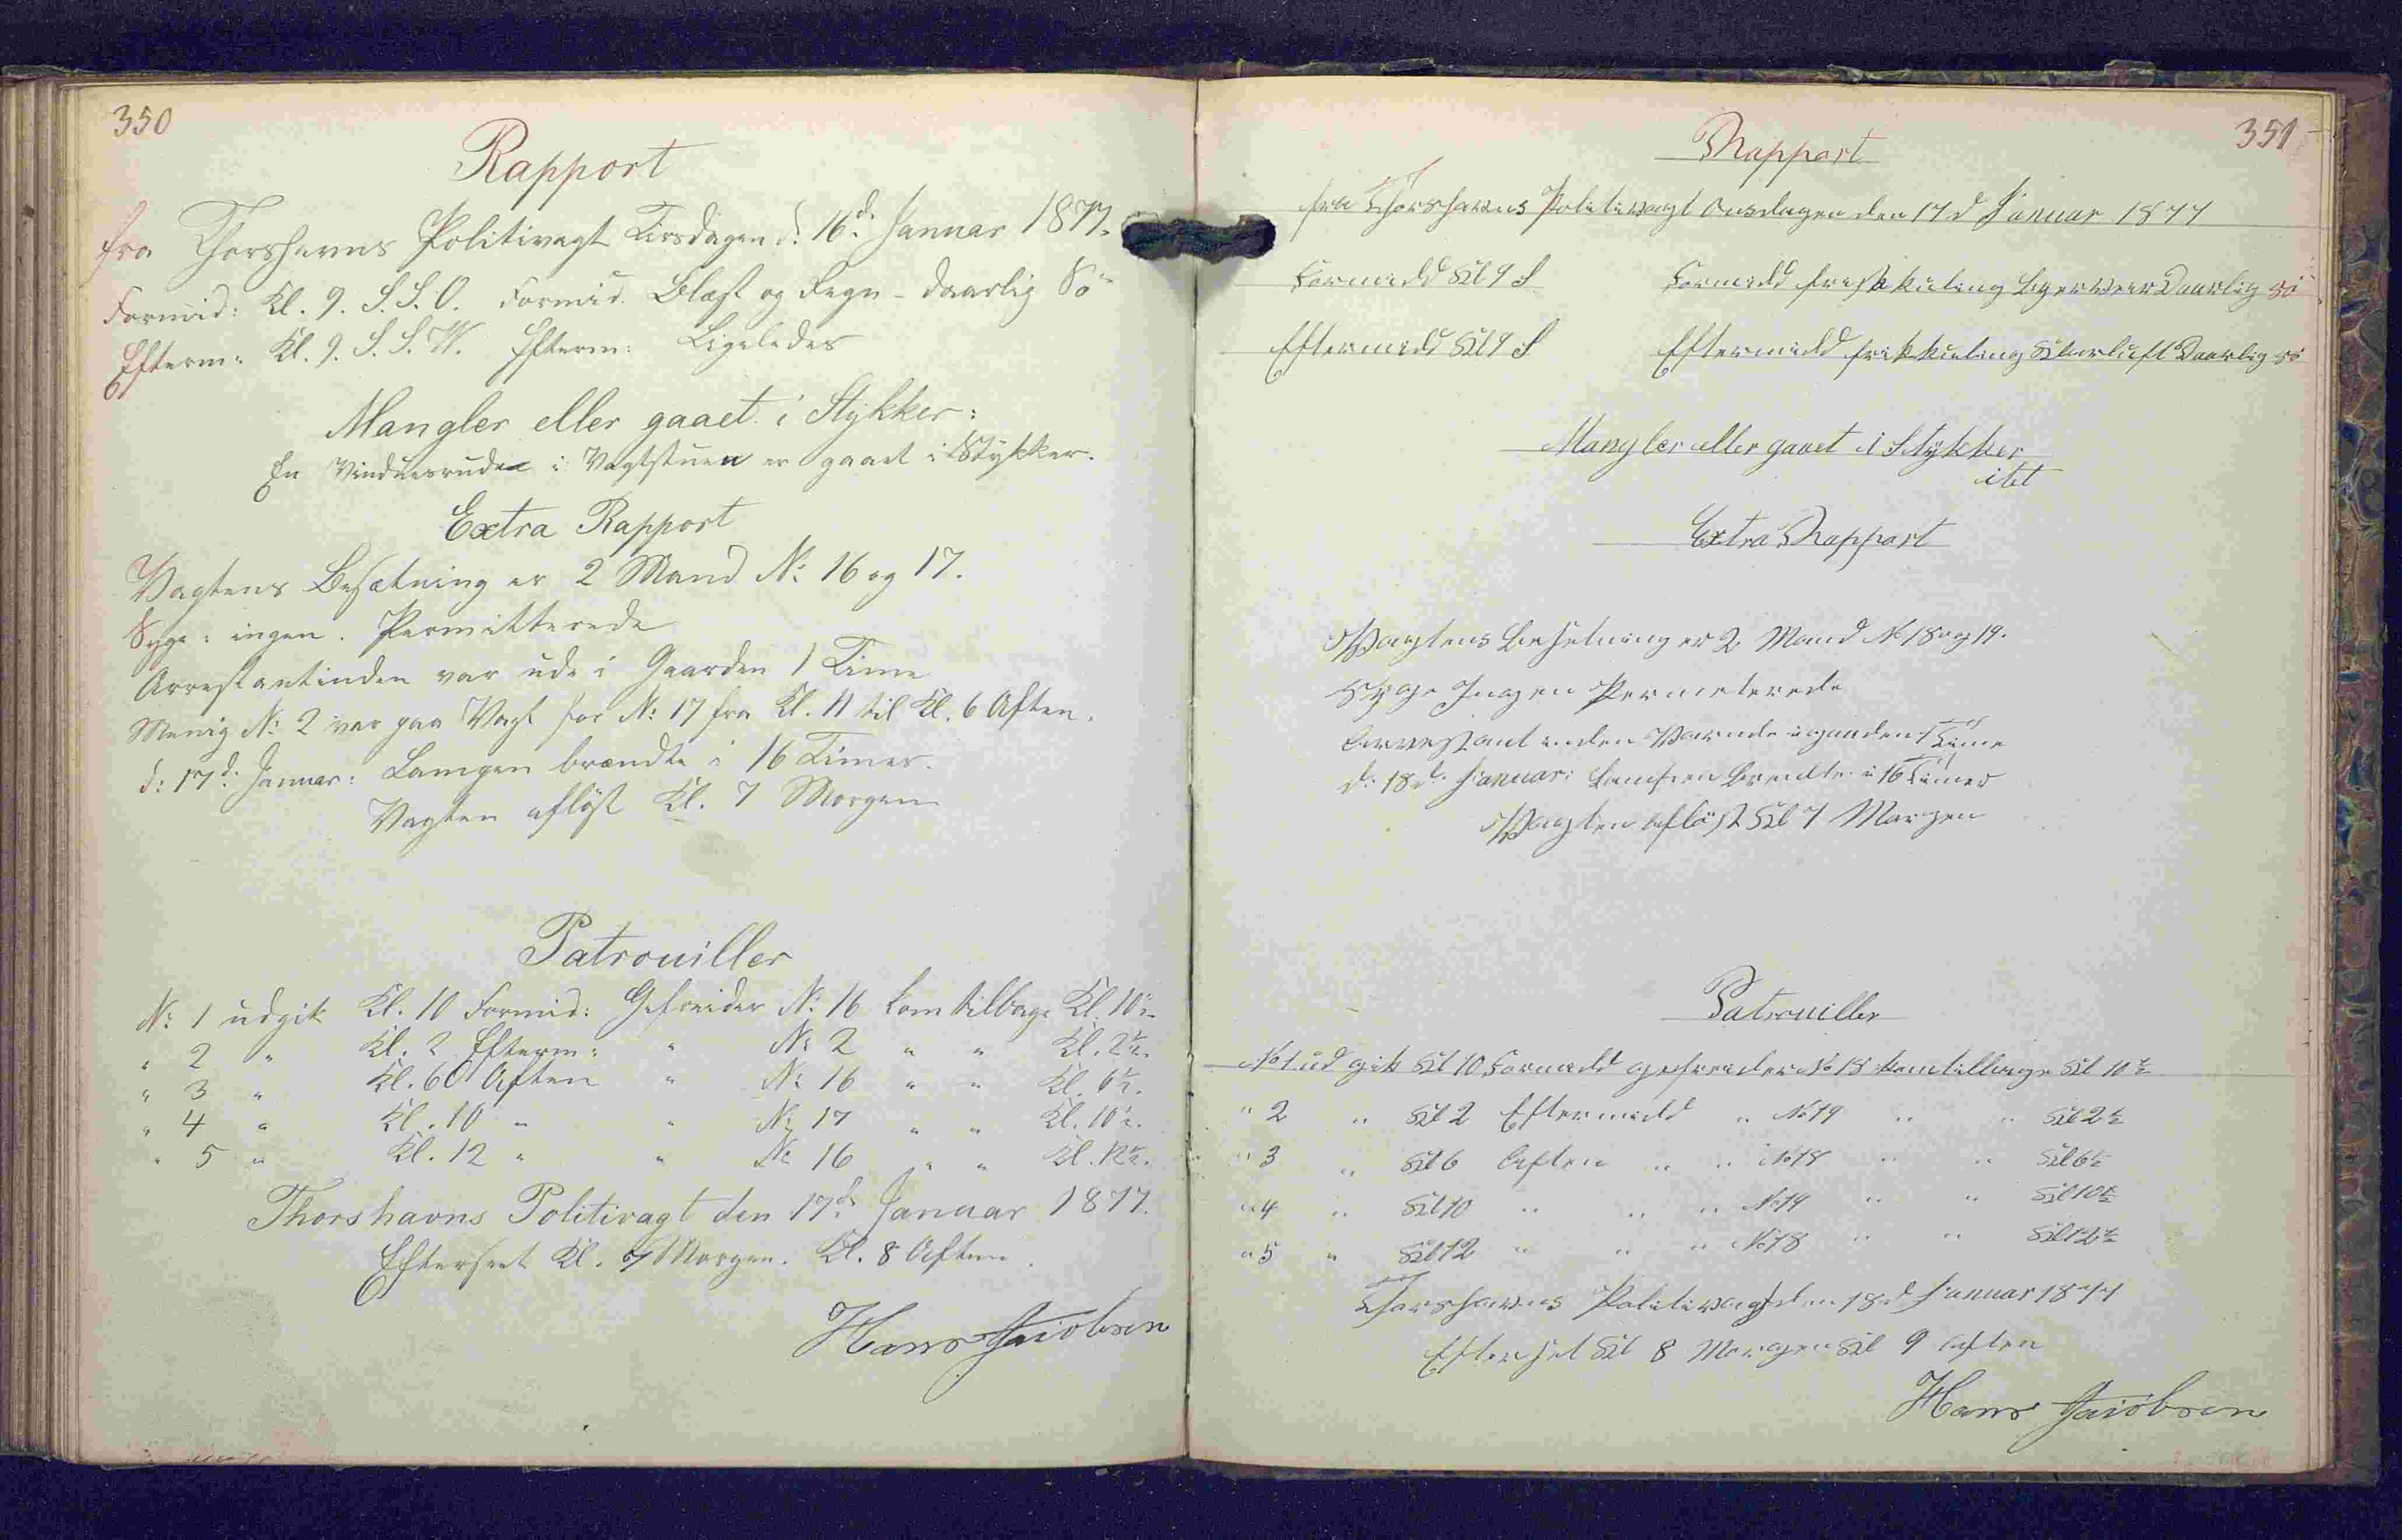 350
Rapport
fra Thorshavns Politivagt Tirsdagen d. 16d. Januar 1877.
Formid: Kl. 9. S.S.O. Formid. Blæst og Regn - daarlig Sö
Efterm: Kl. 9. S.S.W. Efterm: Ligeledes
Mangler eller gaaet i Stykker:
En Vinduesrude i Vagtstuen er gaaet i Stykker.
Extra Rapport
Vagtens Besætning er 2 Mand No 16 og 17.
Syge: ingen. Permitterede
Arrestantinden var ude i Gaarden 1 Time
Menig No 2 var paa Vagt for No 17 fra Kl. 11 til Kl. 6 Aften.
d: 17d. Januar: Lampen brændte i 16 Timer.
Vagten aflöst Kl. 7 Morgen
Patrouiller
No 1 udgik Kl. 10 Formid: Gefreider No 16 kom tilbage Kl. 10½
" 2 " Kl. 2 Efterm: " No 2 " " Kl. 2½.
" 3 " Kl. 6 Aften " No 16 " " Kl. 6½.
" 4 " Kl. 10 " " No 17 " " Kl. 10½.
" 5 " Kl. 12 " " No 16 " " Kl. 12½.
Thorshavns Politivagt den 17d. Januar 1877.
Efterseet Kl. 7 Morgen. Kl. 8 Aften.
Hans Jacobsen
351
Rapport
fra Thorshavns Politivagt Onsdagen den 17d Januar 1877
Formidd Kl 9 S Formidd frisk kuling Daarlig sö
Eftermidd Kl 9 S Eftermidd frisk kuling Klarluft Daarlig sö
Mangler eller gaaet i Stykker
ikt
Extra Rapport
Vagtens Besetning er 2 Mand No 18 og 19.
Syge Ingen Permeterede
Arrestantinden Var ude i gaarden 1 Time
d. 18d. Januar: Lampen Brendte i 16 Timer
Vagten aflöst Kl 7 Morgen
Patrouiller
No 1 ud gik Kl 10 Formidd gefreider No 18 kom tilbage Kl 10½
" 2 " Kl 2 Eftermidd " No 19 " " Kl 2½
" 3 " Kl 6 Aften " " No 18 " " Kl 6½
" 4 " Kl 10 " " " No 19 " " Kl 10½
" 5 " Kl 12 " " " No 18 " " Kl 12½
Thorshavns Politivagt den 18d Januar 1877
Efterset Kl 8 Morgen Kl 9 Aften
Hans Jacobsen